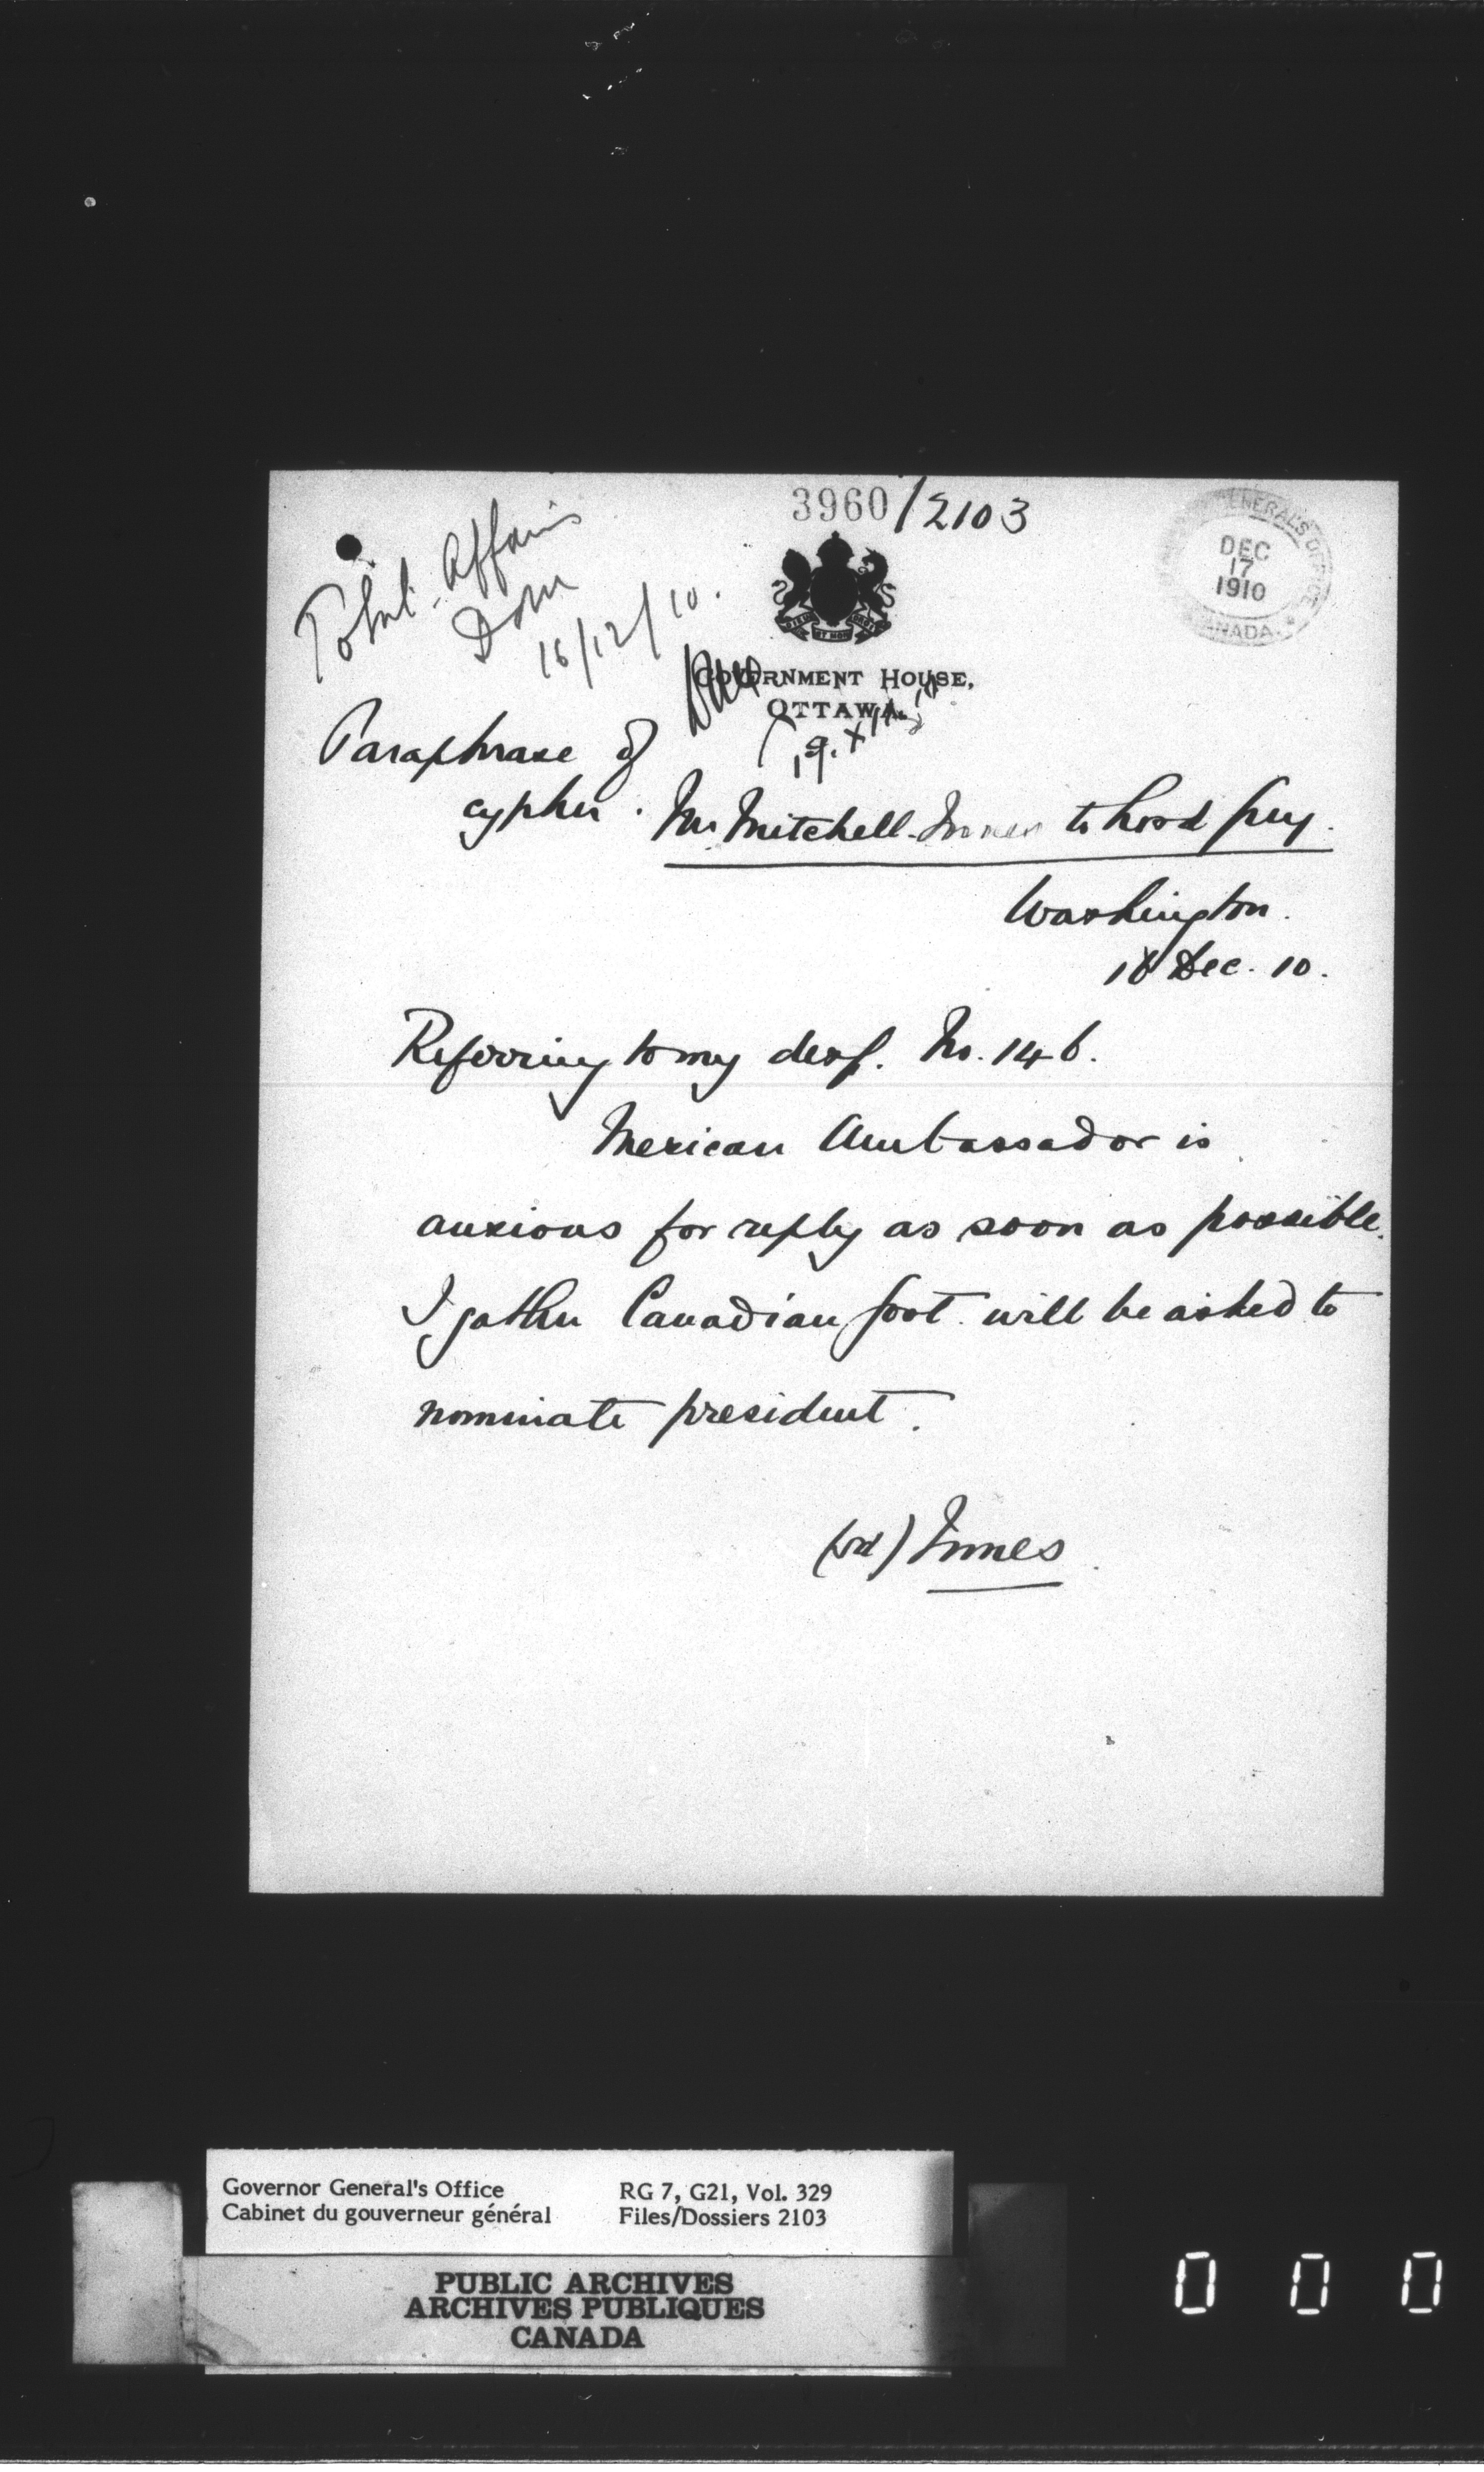 3960/2103
GENERAL'S OFFICE
DEC
17
1910
CANADA.
Affairs
Dom
16/12/10.
DIEU ET MON DROIT
GOVERNMENT HOUSE,
OTTAWA.
19.XII.10
Paraphrase of
cypher. Mr Mitchell-Innes to Lord Grey.
Washington.
16 Dec. 10.
Referring to my desp. No. 146.
Mexican Ambassador is
anxious for reply as soon as possible.
I gather Canadian Govt. will be asked to
nominate president.
(sd) Innes.
Governor General's Office
Cabinet du gouverneur général
RG 7, G21, Vol. 329
Files/Dossiers 2103
PUBLIC ARCHIVES
ARCHIVES PUBLIQUES
CANADA
0 0 0